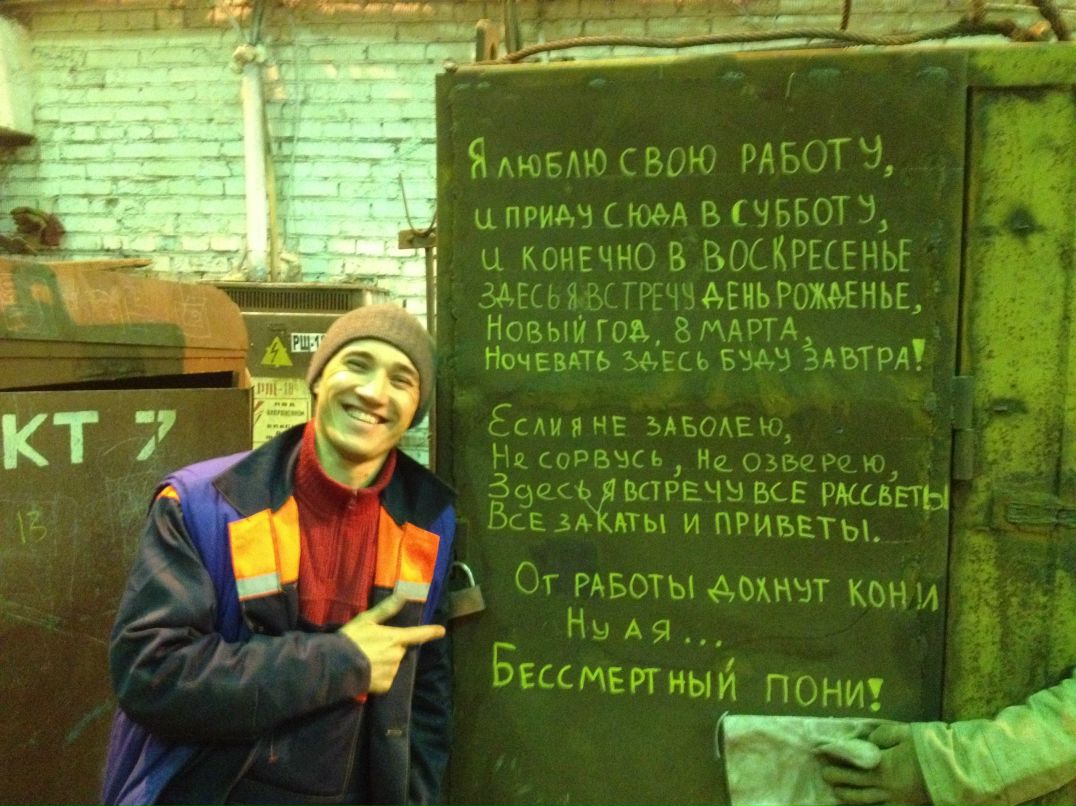 Я люблю свою работу,
и приду сюда в субботу,
и конечно в воскресенье
здесь я встречу день рожденье,
Новый год, 8 марта,
Ночевать здесь буду завтра!
Если я не заболею,
Не сорвусь, не озверею,
Здесь я встречу все рассветы
Все закаты и приветы.
От работы дохнут кони
Ну а я...
Бессмертный пони!
КТ 7
13
РЩ-1
РЩ-18